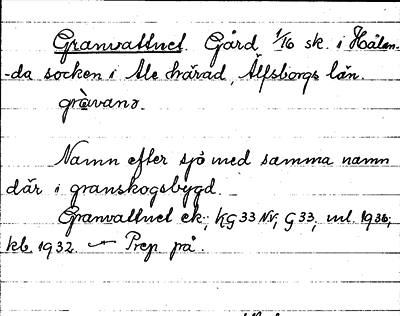 Granvattnet. Gård 1/16 sk. i Hålan-
-da socken i Ale härad, Älfsborgs län.
gràvanə.
Namn efter sjö med samma namn
där i granskogsbygd.
Granvattnet ek; KG33NV, G33, ml. 1936;
kb. 1932. — Prep på.